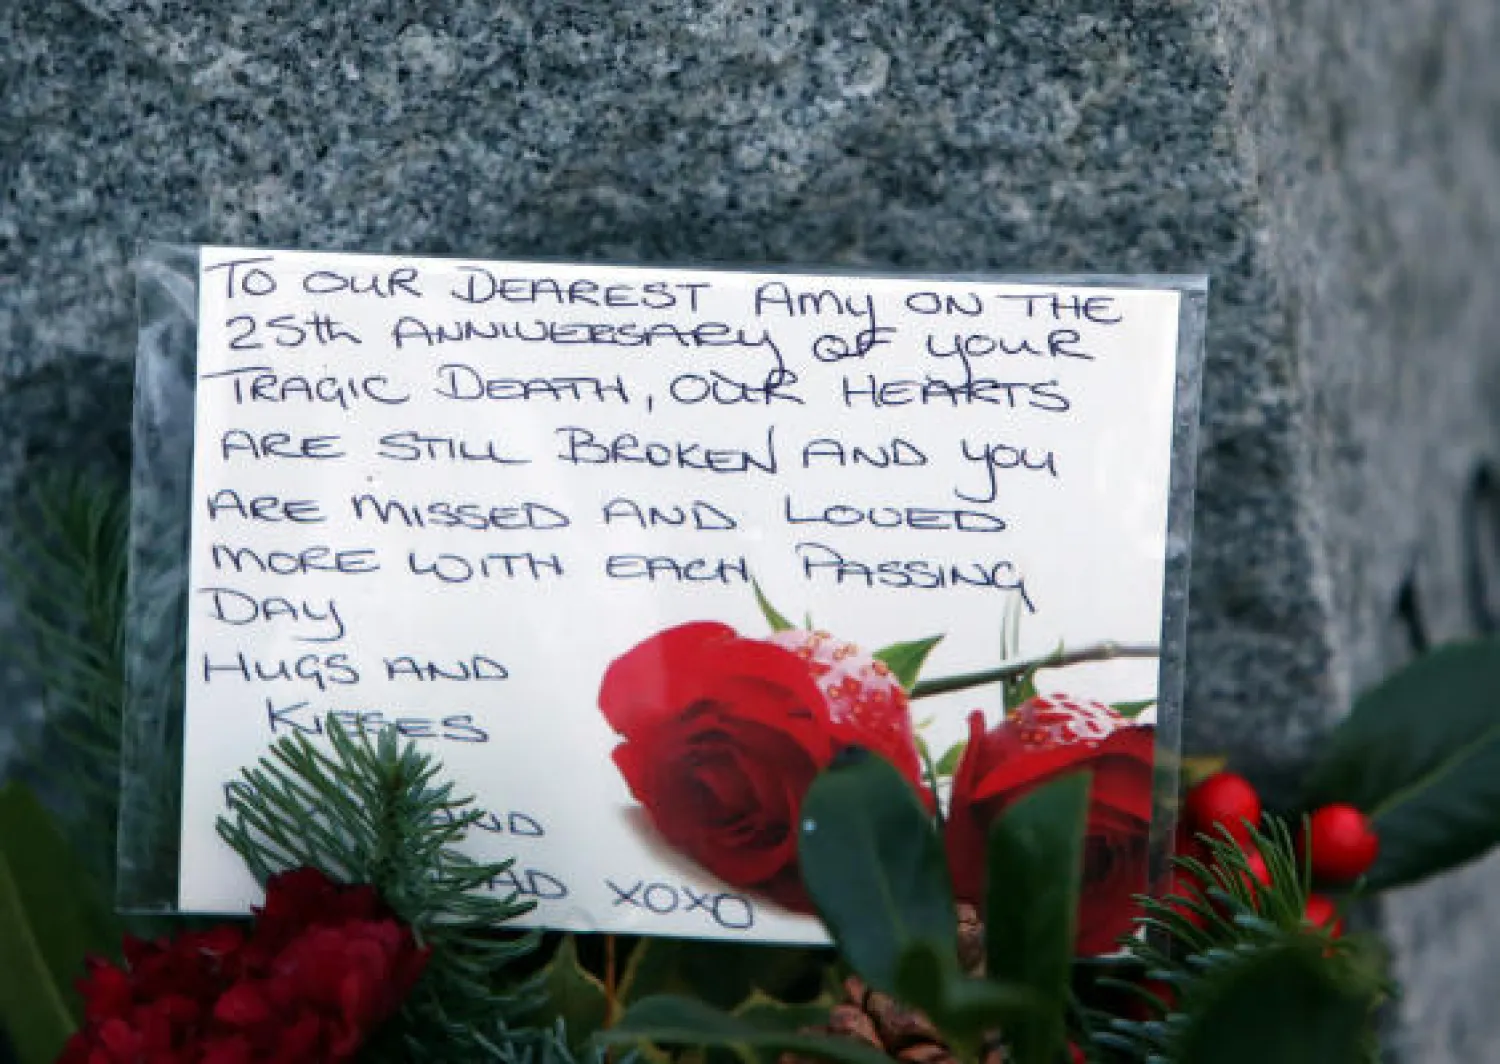 TO OUR DEAREST AMY ON THE
25th ANNIVERSARY OF YOUR
TRAGIC DEATH, OUR HEARTS
ARE STILL BROKEN AND YOU
ARE MISSED AND LOVED
MORE WITH EACH PASSING
DAY
HUGS AND
KISSES
AND
XOXO